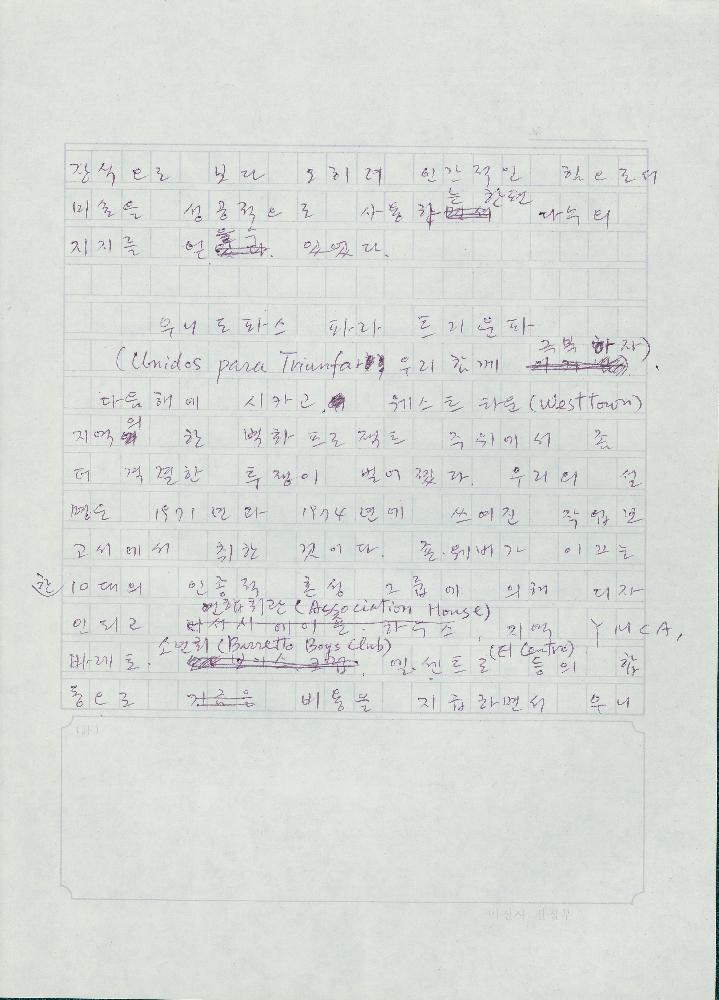 장식으로 보다 오히려 인간적인 힘으로서
미술을 성공적으로 사용하는 한편 다수의
지지를 얻을 수 있었다.
우니도파스 파라 트리운파
(Unidos para Triunfar, 우리 함께 극복하자).
다음해에 시카고, 웨스트 타운(West town)
지역의 한 벽화 프로젝트 주위에서 좀
더 격렬한 투쟁이 벌어졌다. 우리의 설
명은 1971년과 1974년에 쓰여진 작업보
고서에서 취한 것이다. 존·웨버가 이끄는
한 10대의 인종적 혼성 그룹에 의해 디자
인되고 연합회관(Association House), 지역 YMCA,
바레토· 소년회(Barretto Boys Club), 엘·센트로(El Centro) 등의 합
동으로 비용을 지급하면서 우니
미진사 편집부